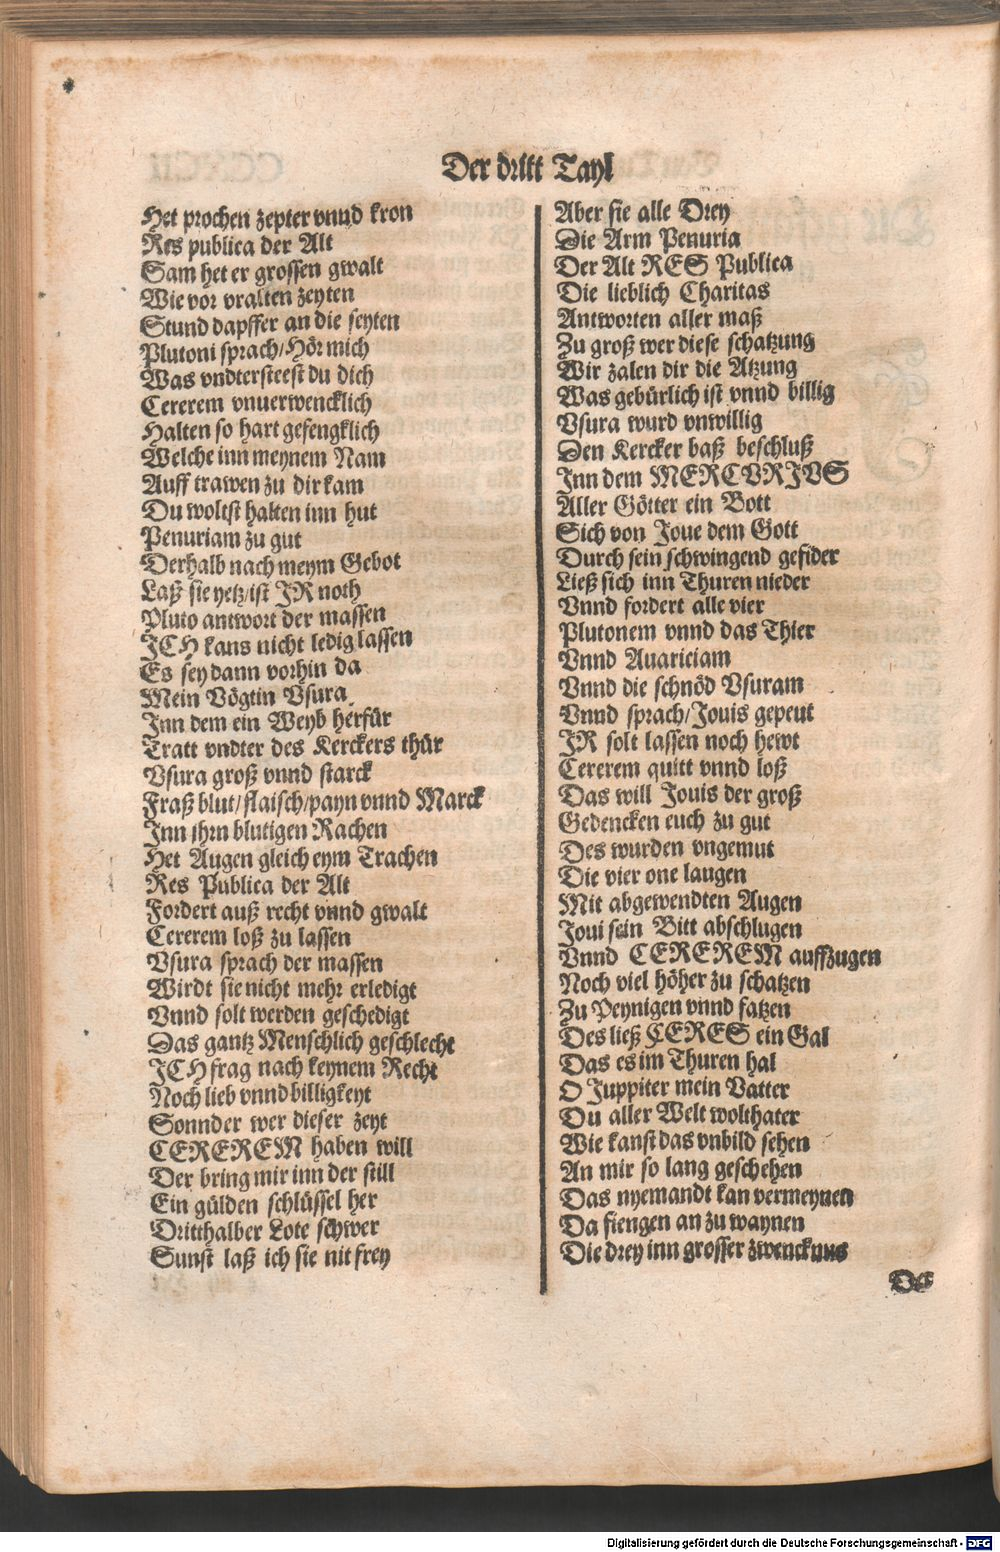 Der dritt Tayl
Het prochen zepter vnnd kron
Res publica der Alt
Sam het er grossen gwalt
Wie vor vralten zeyten
Stund dapffer an die seyten
Plutoni sprach/Hör mich
Was vndtersteest du dich
Cererem vnuerwencklich
Halten so hart gefengklich
Welche inn meynem Nam
Auff trawen zu dir kam
Du woltst halten inn hut
Penuriam zu gut
Derhalb nach meym Gebot
Laß sie yetz/ist JR noth
Pluto antwort der massen
JCH kans nicht ledig lassen
Es sey dann vorhin da
Mein Vögtin Vsura
Inn dem ein Weyb herfür
Tratt vndter des Kerckers thür
Vsura groß vnnd starck
Fraß blut/flaisch/payn vnnd Marck
Inn ihrn blutigen Rachen
Het Augen gleich eym Trachen
Res Publica der Alt
Fordert auß recht vnnd gwalt
Cererem loß zu lassen
Vsura sprach der massen
Wirdt sie nicht mehr erledigt
Vnnd solt werden geschedigt
Das gantz Menschlich geschlecht
JCH frag nach keynem Recht
Noch lieb vnnd billigkeyt
Sonnder wer dieser zeyt
CEREREM haben will
Der bring mir inn der still
Ein gülden schlüssel her
Dritthalber Lote schwer
Sunst laß ich sie nit frey
Aber sie alle Drey
Die Arm Penuria
Der Alt RES Publica
Die lieblich Charitas
Antworten aller maß
Zu groß wer diese schatzung
Wir zalen dir die Atzung
Was gebürlich ist vnnd billig
Vsura wurd vnwillig
Den Kercker baß beschluß
Inn dem MERCVRIVS
Aller Götter ein Bott
Sich von Joue dem Gott
Durch sein schwingend gefider
Ließ sich inn Thuren nieder
Vnnd fordert alle vier
Plutonem vnnd das Thier
Vnnd Auariciam
Vnnd die schnöd Vsuram
Vnnd sprach/Jouis gepeut
JR solt lassen noch hewt
Cererem quitt vnnd loß
Das will Jouis der groß
Gedencken euch zu gut
Des wurden vngemut
Die vier one laugen
Mit abgewendten Augen
Joui sein Bitt abschlugen
Vnnd CEREREM auffzugen
Noch viel höher zu schatzen
Zu Peynigen vnnd fatzen
Des ließ CERES ein Gal
Das es im Thuren hal
O Juppiter mein Vatter
Du aller Welt wolthater
Wie kanst das vnbild sehen
An mir so lang geschehen
Das nyemandt kan vermeynen
Da fiengen an zu waynen
Die drey inn grosser zwencknus
Da
Digitalisierung gefördert durch die Deutsche Forschungsgemeinschaft - DFG